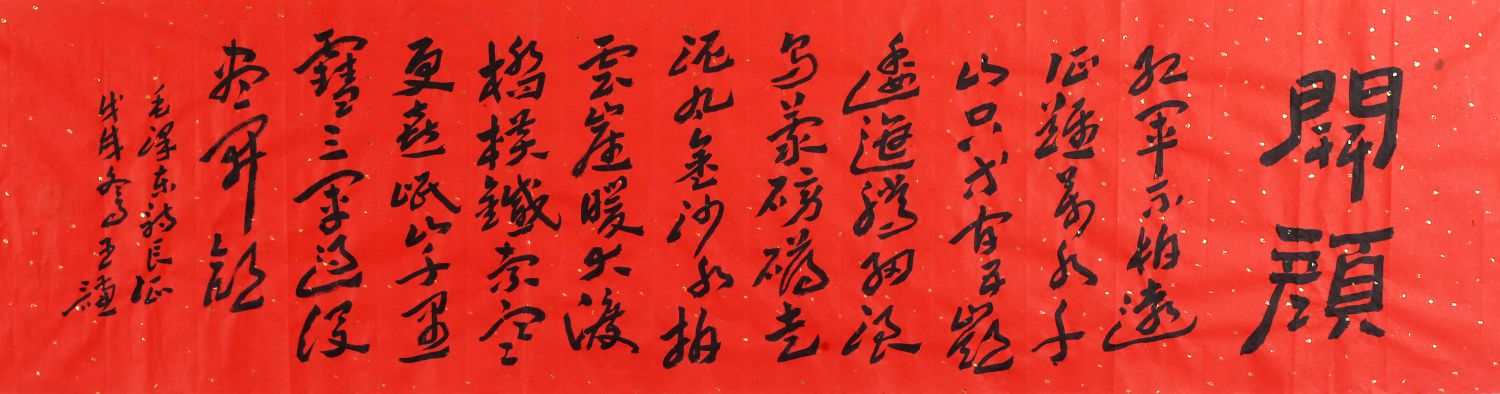 開顏
红軍不怕遠
征難萬水千
山只等闲五嶺
逶迤騰细浪
烏蒙磅礴走
泥丸金沙水拍
雲崖暖大渡
橋横鐵索寒
更喜岷山千里
雪三軍過後
盡開颜
毛澤東詩長征
戊戌冬王